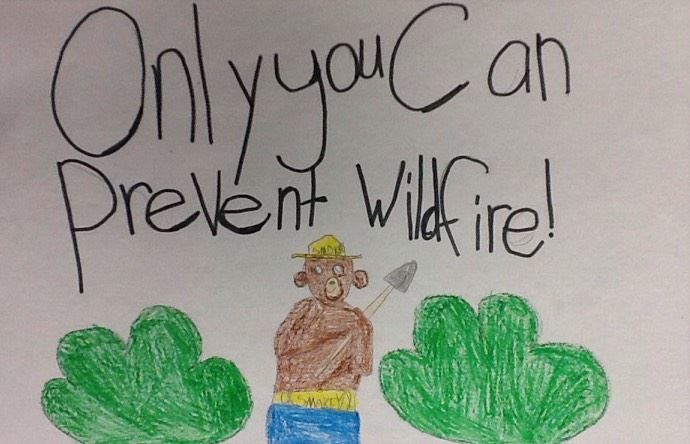 Only you Can
prevent Wildfire!
SMOKEY
SMOKEY